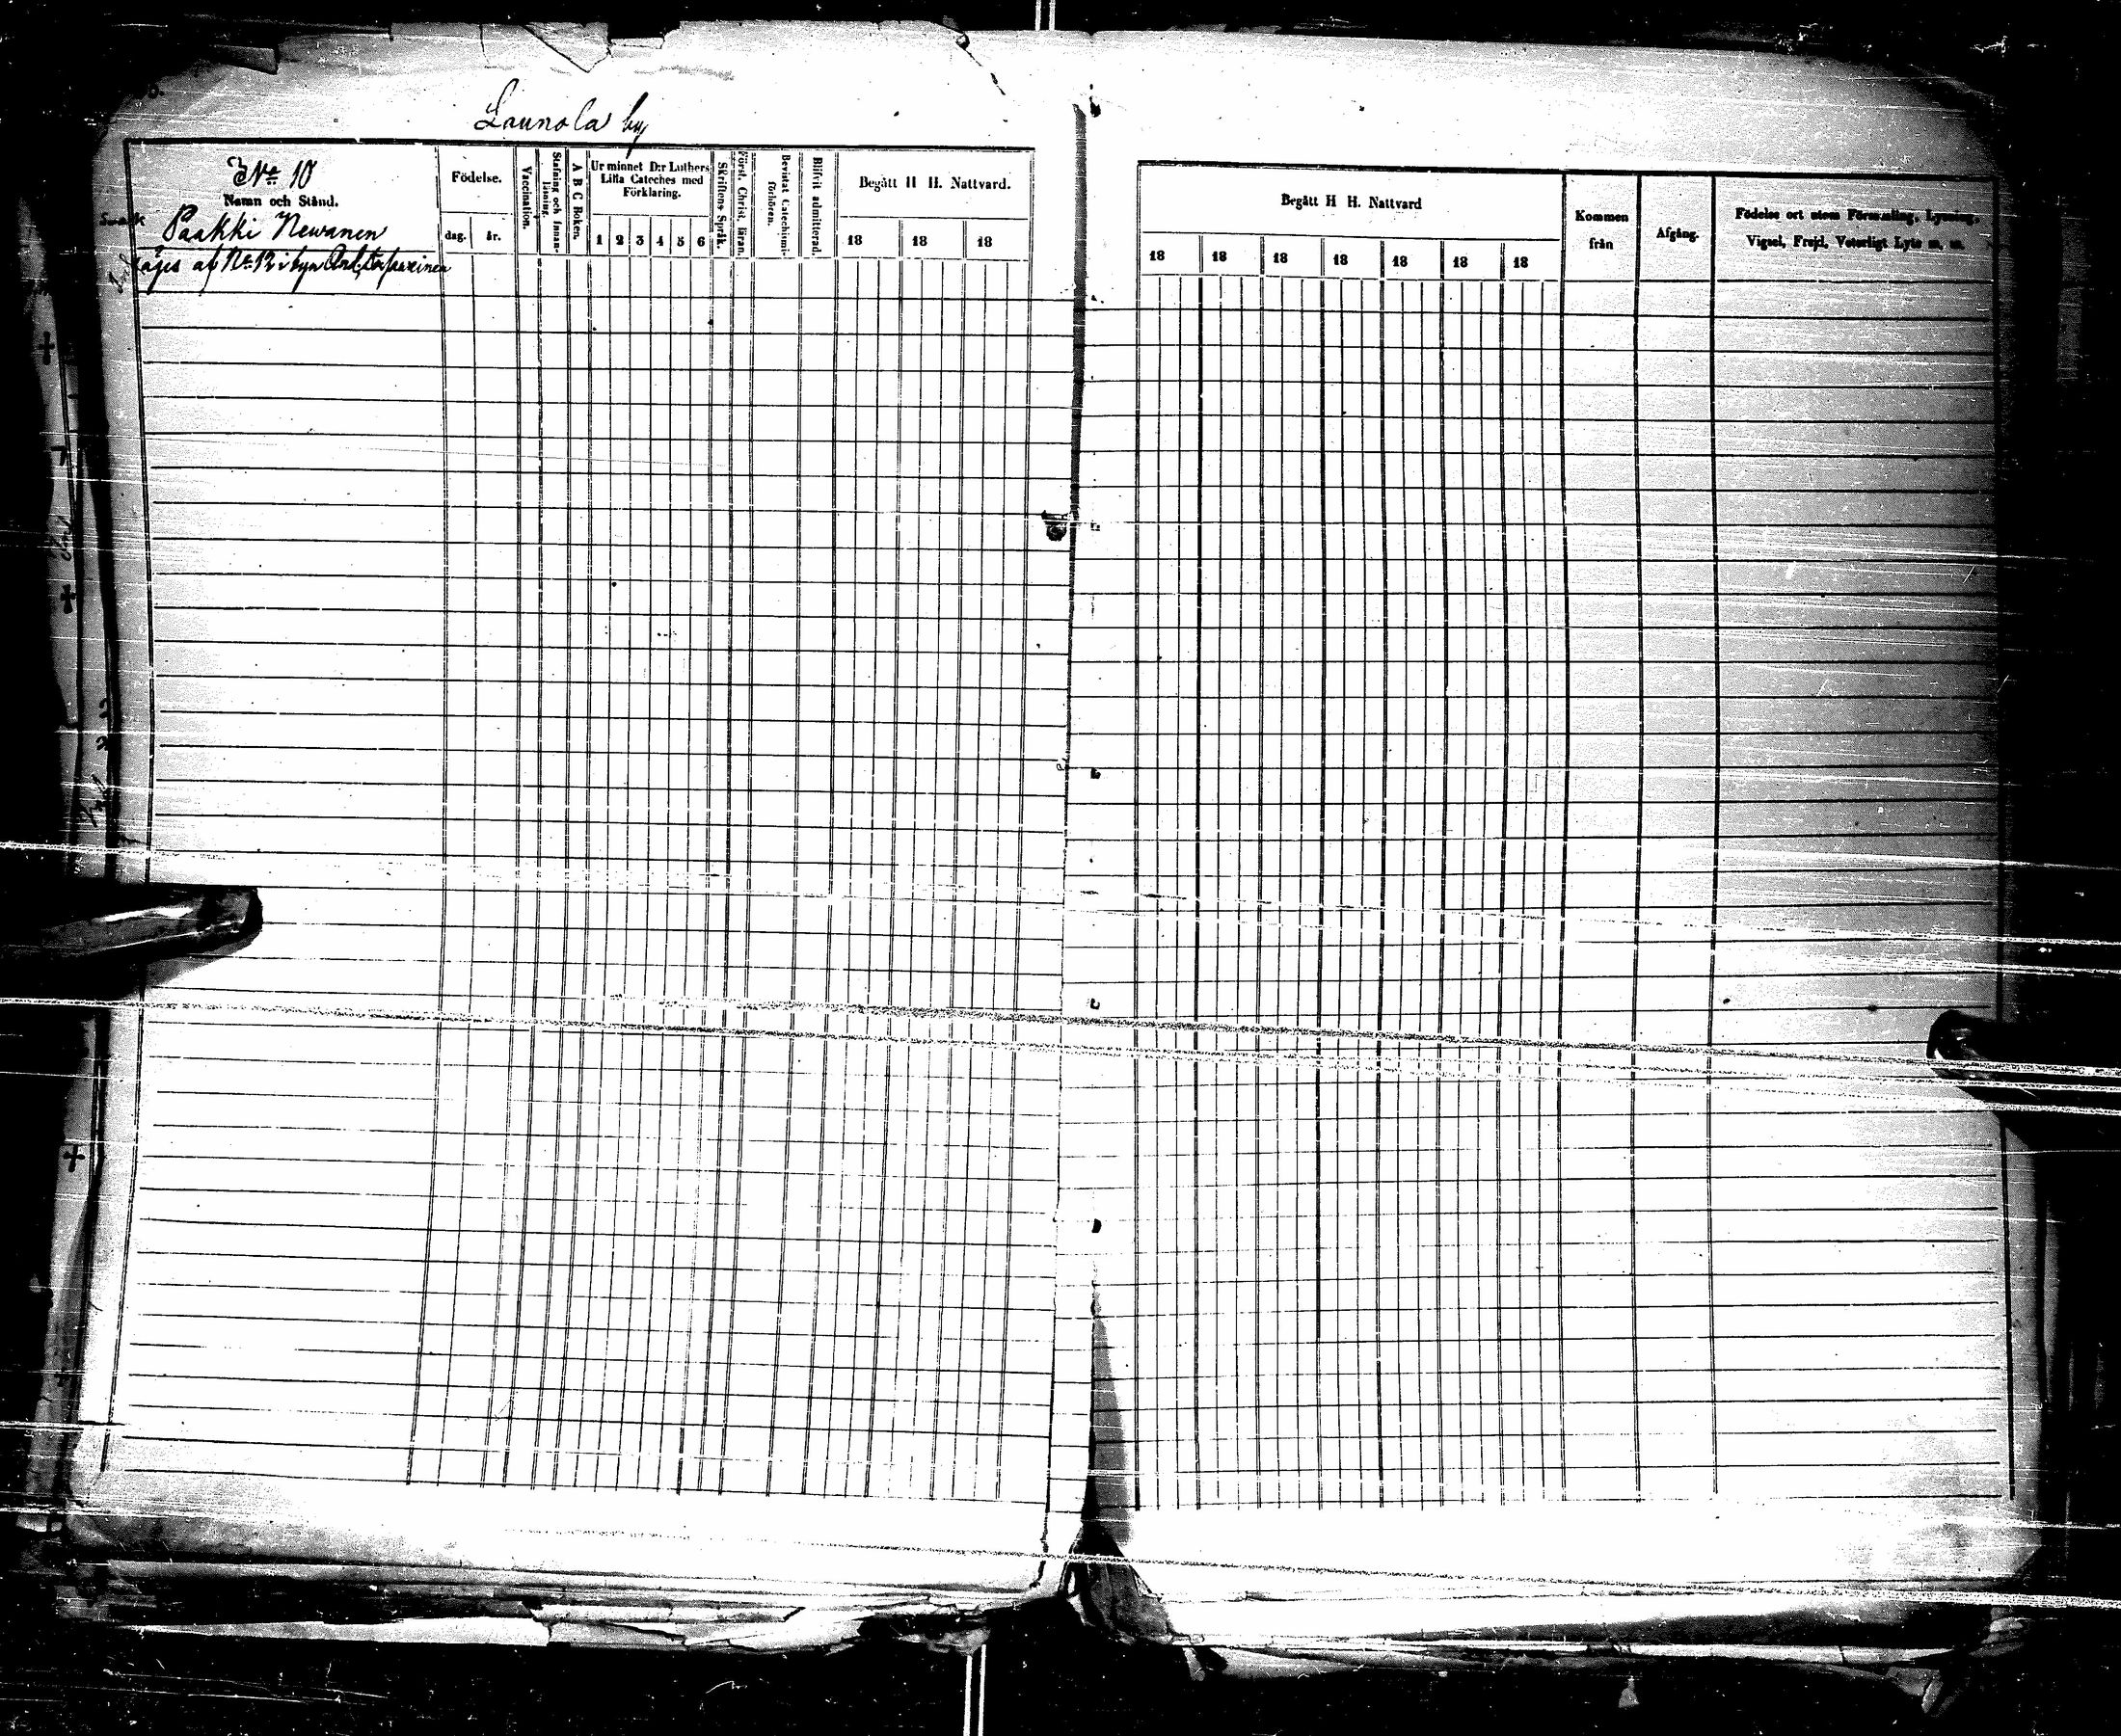 Launola by
No 10
Namn och Stånd.
Paakki Newanen
äges af No 12 i byn
Födelse.
dag. år.
Vaccination.
Stafning och Innan-
läsning.
A B C Boken.
Ur minnet D:r Luthers
Lilla Cateches med
Förklaring.
1 2 3 4 5 6
Skriftens Språk.
Först. Christ. läran.
Bevistat Catechismi-
förhören.
Blifvit admitterad.
Begått H H. Nattvard.
18 18 18
Begått H H. Nattvard
18 18 18 18 18 18 18
Kommen
från
Afgång.
Födelse ort utom Församling, Lysning,
Vigsel, Frejd, Veterligt Lyte m. m.